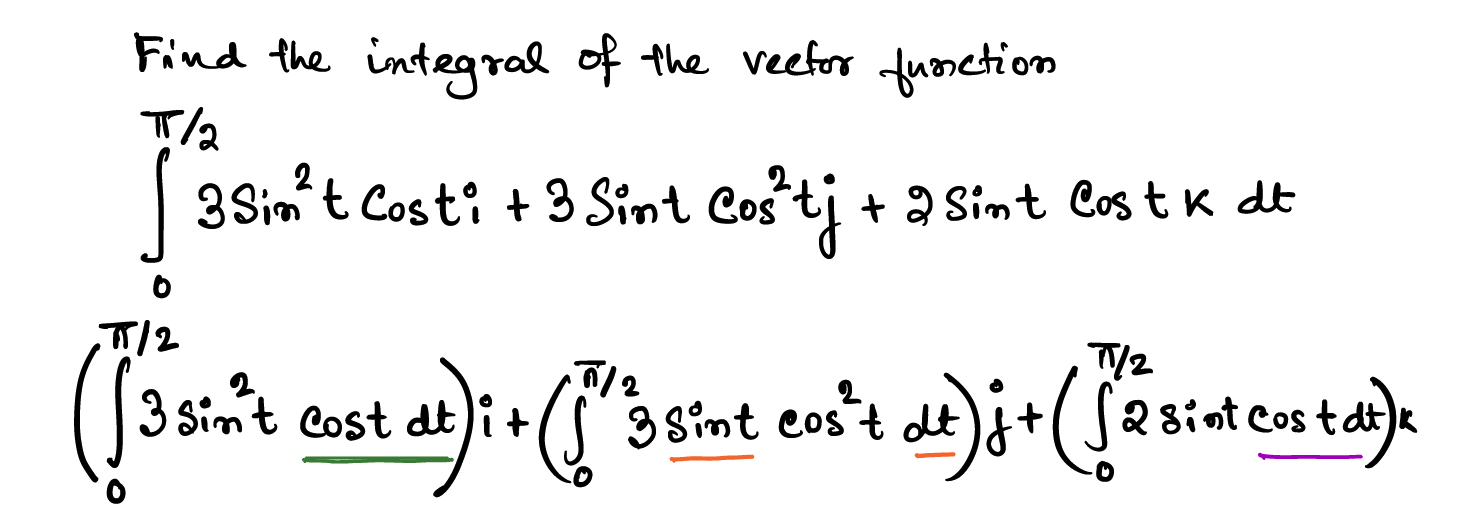 Find the integral of the vector function
∫₀^{π/2} 3 Sin² t Cos t i + 3 Sin t Cos² t j + 2 Sin t Cos t k dt
(∫₀^{π/2} 3 sin² t cos t dt) i + (∫₀^{π/2} 3 sin t cos² t dt) j + (∫₀^{π/2} 2 sin t cos t dt) k